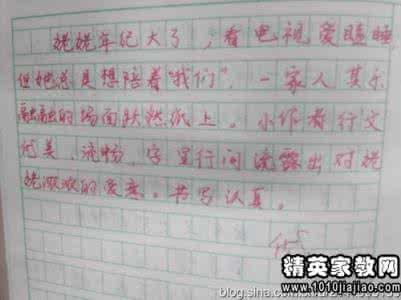 姥姥年纪大了，看电视爱瞌睡
但她总是想陪着“我们”，一家人其乐
融融的场面跃然纸上。小作者行文
优美、流畅，字里行间流露出对姥
姥浓浓的爱意。书写认真。
精英家教网
blog.sina.com.cn
www.1010jiajiao.com